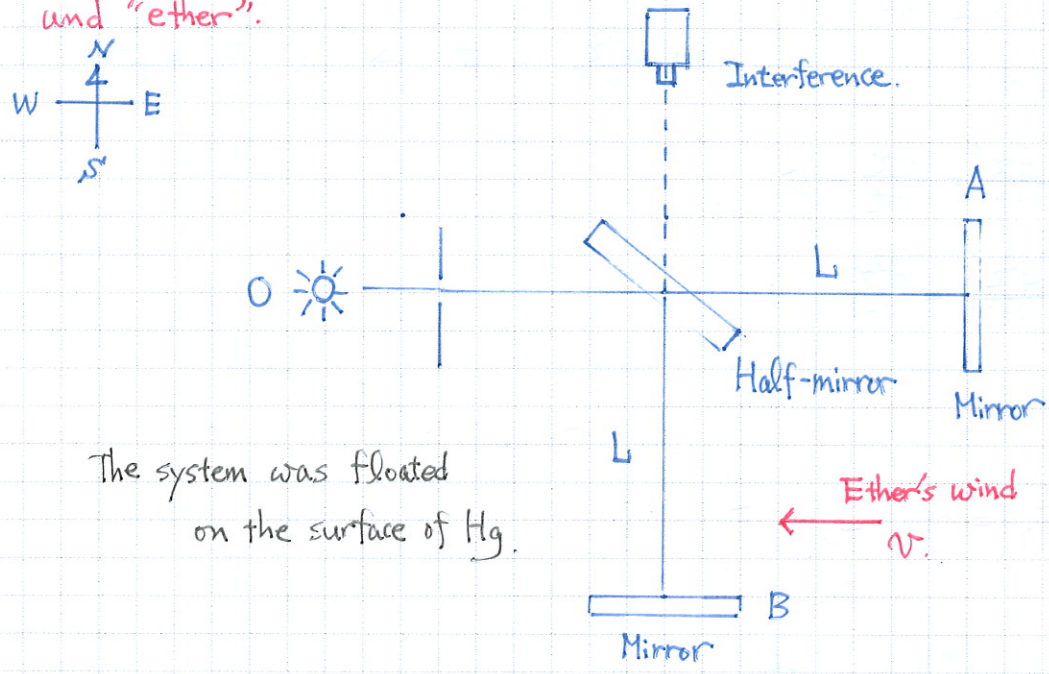 und "ether".
N
W E
S
Interference.
A
O
L
Half-mirror
Mirror
L
The system was floated
on the surface of Hg.
Ether's wind
v.
B
Mirror